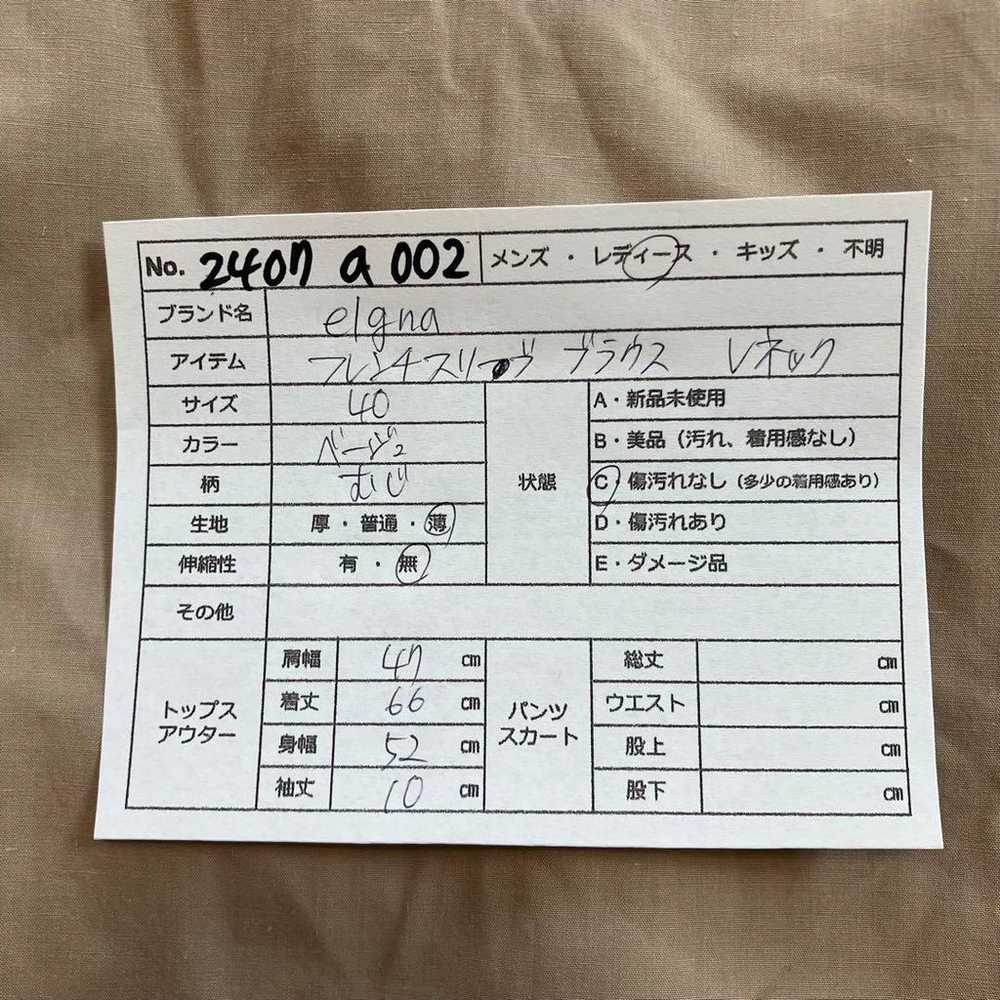 No. 2407 a 002 メンズ ・ レディース ・ キッズ ・ 不明
ブランド名 elgna
アイテム フレンチスリーヴ ブラウス Vネック
サイズ 40
カラー ベージュ
柄 むじ
生地 厚・普通・薄
伸縮性 有 ・ 無
状態
A・新品未使用
B・美品（汚れ、着用感なし）
C・傷汚れなし（多少の着用感あり）
D・傷汚れあり
E・ダメージ品
その他
トップス
アウター
肩幅 47 cm
着丈 66 cm
身幅 52 cm
袖丈 10 cm
パンツ
スカート
総丈 cm
ウエスト cm
股上 cm
股下 cm